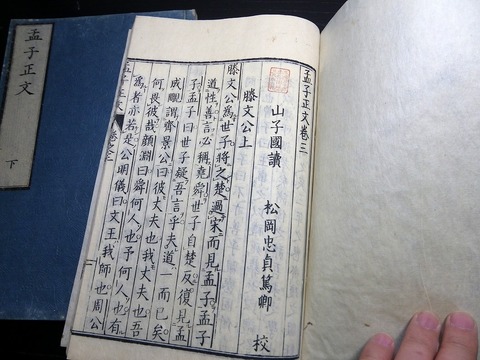 孟子正文卷三
山子國讀 松岡忠貞篤卿 校
滕文公上
滕文公爲世子將之楚過宋而見孟子孟子
道性善言必稱堯舜世子自楚反復見孟
子孟子曰世子疑吾言乎夫道一而已矣
成覸謂齊景公曰彼丈夫也我丈夫也吾
何畏彼哉顏淵曰舜何人也予何人也有
爲者亦若是公明儀曰文王我師也周公
孟子正文 卷之三
孟子正文 下